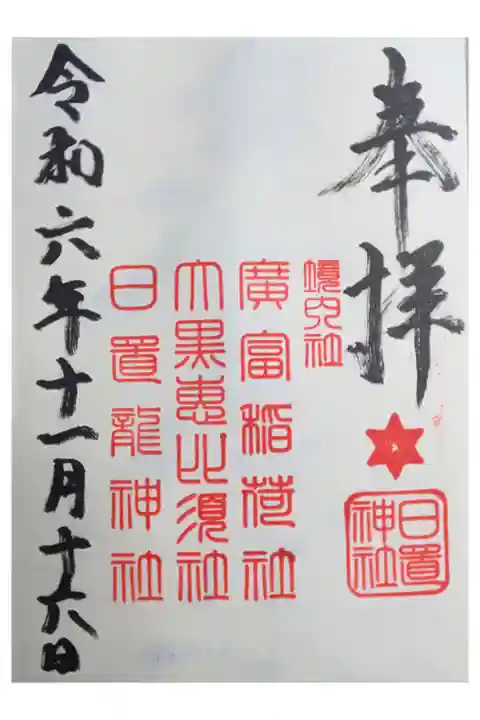 奉拝
日置
神社
境内社
廣富稲荷社
大黒恵比須社
日置龍神社
令和六年十一月十六日